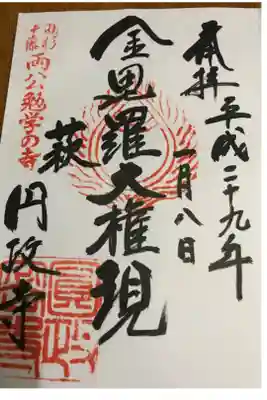 奉拝
平成二十九年
一月八日
金毘羅大権現
萩
円政寺
両公勉学の寺